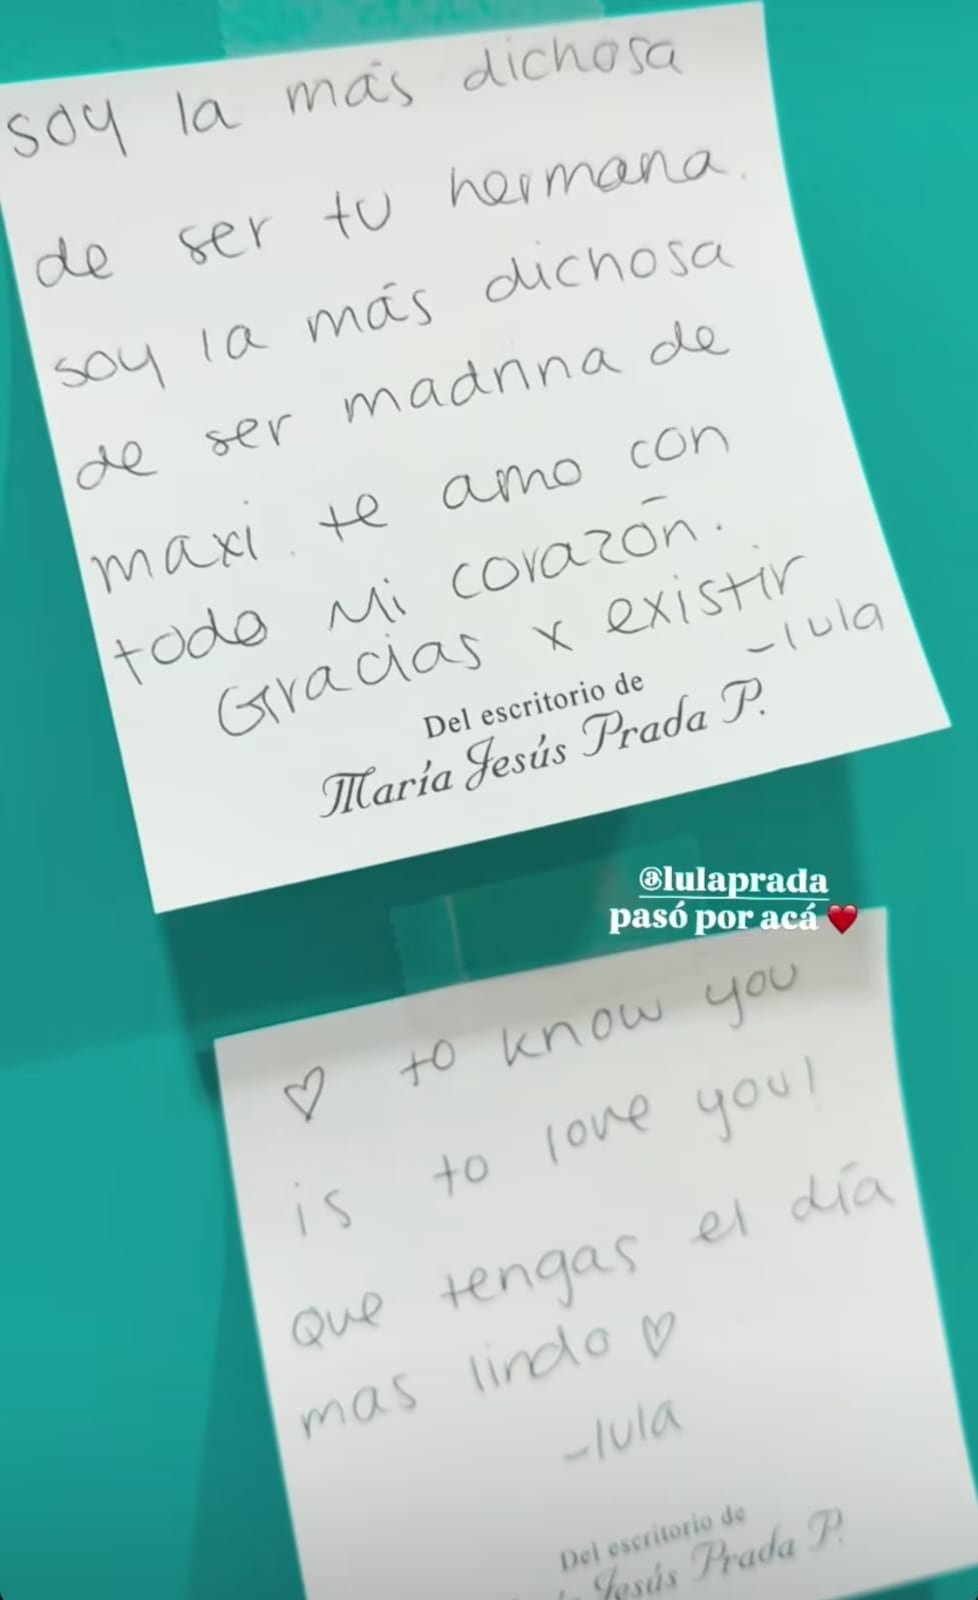 soy la más dichosa
de ser tu hermana.
soy la más dichosa
de ser madrina de
maxi. te amo con
todo Mi corazón.
Gracias x existir
-lula
Del escritorio de
María Jesús Prada P.
@lulaprada
pasó por acá ❤️
♡ to know you
is to love you!
que tengas el día
mas lindo ♡
-lula
Del escritorio de
Jesús Prada P.